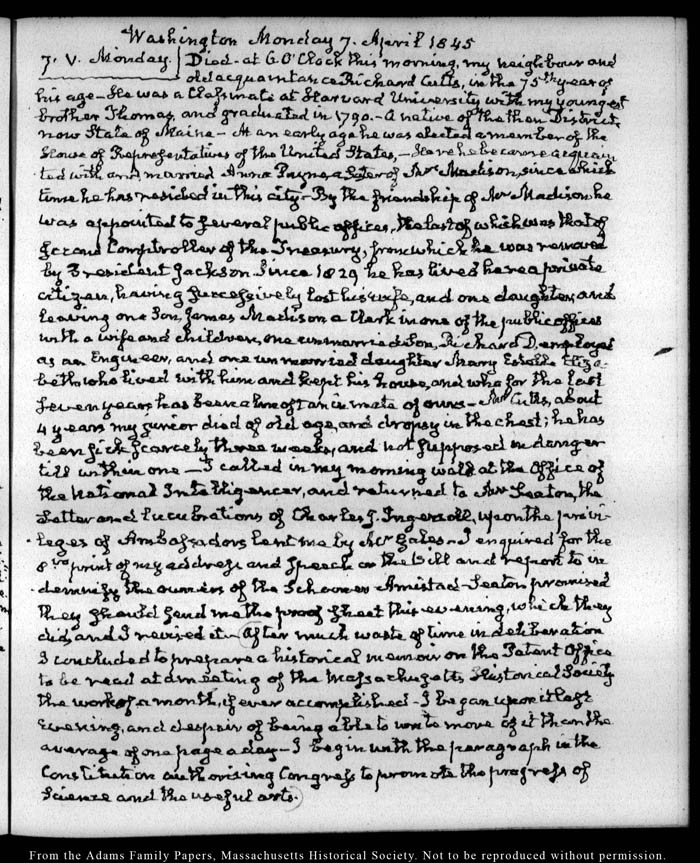 Washington Monday 7. April 1845
7. V. Monday. Died at 6 O'Clock this morning, my neighbour and
old acquaintance Richard Cutts, in the 75th year of
his age – He was a Classmate at Harvard University with my youngest
brother Thomas, and graduated in 1790. – A native of the then District,
now State of Maine – At an early age he was elected a member of the
House of Representatives of the United States, – Here he became acquain
ted with and married Anna Payne a Sister of Mrs Madison, since which
time he has resided in this city – By the friendship of Mr Madison he
was appointed to several public offices, the last of which was that of
Second Comptroller of the Treasury, from which he was removed
by President Jackson Since 1829 he has lived here a private
citizen, having successively lost his wife, and one daughter, and
leaving one Son, James Madison a Clerk in one of the public offices
with a wife and children, one unmarried Son, Richard D. employed
as an Engineer, and one unmarried daughter Mary Estelle Eliza-
beth who lived with him and kept his house, and who for the last
seven years has been almost an inmate of ours – Mr Cutts, about
4 years my junior died of old age, and dropsy in the chest; he has
been sick scarcely three weeks, and not supposed in danger
till within one – I called in my morning walk at the Office of
the National Intelligencer, and returned to Mr Seaton, the
Letter and Lucubrations of Charles J. Ingersoll, upon the privi-
leges of Ambassadors lent me by Mr Gales – I enquired for the
8vo print of my address and Speech on the Bill and report to in
demnify the owners of the Schooner Amistad – Seaton promised
they should send me the proof sheet this evening, which they
did, and I revised it – After much waste of time in deliberation
I concluded to prepare a historical memoir on the Patent Office
to be read at a meeting of the Massachusetts Historical Society
the work of a month, if ever accomplished – I began upon it last
Evening, and despair of being able to write more of it than the
average of one page a day – I begin with the paragraph in the
Constitution authorising Congress to promote the progress of
Science and the useful arts.
From the Adams Family Papers, Massachusetts Historical Society. Not to be reproduced without permission.